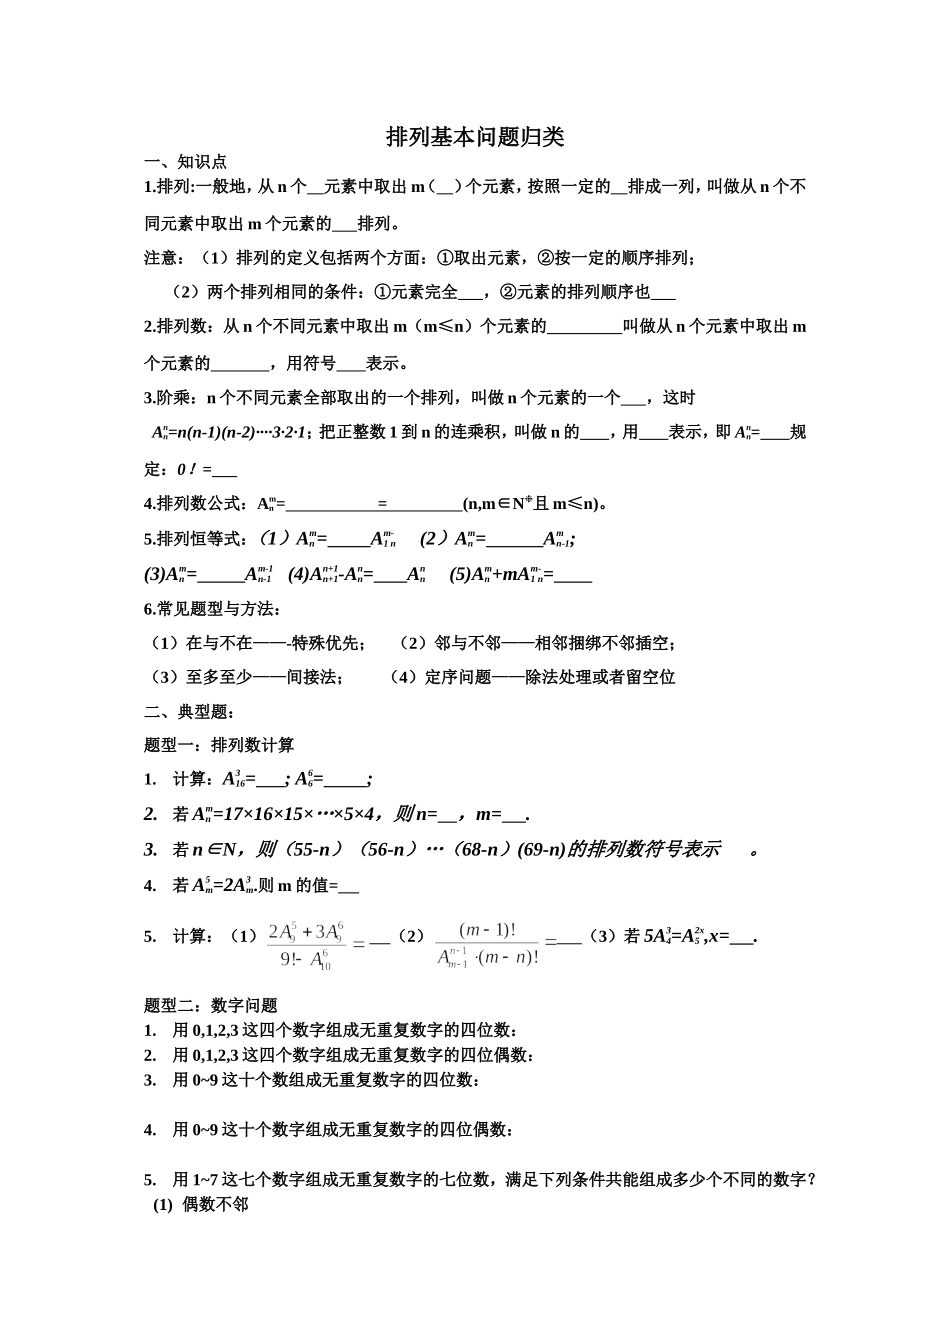 排列基本问题归类
一、知识点
1.排列:一般地，从 n 个__元素中取出 m（__）个元素，按照一定的__排成一列，叫做从 n 个不
同元素中取出 m 个元素的___排列。
注意：（1）排列的定义包括两个方面：①取出元素，②按一定的顺序排列；
（2）两个排列相同的条件：①元素完全___，②元素的排列顺序也___
2.排列数：从 n 个不同元素中取出 m（m≤n）个元素的_________叫做从 n 个元素中取出 m
个元素的_______，用符号____表示。
3.阶乘：n 个不同元素全部取出的一个排列，叫做 n 个元素的一个___，这时
A_n^n=n(n-1)(n-2)····3·2·1；把正整数 1 到 n 的连乘积，叫做 n 的____，用____表示，即 A_n^n=____规
定：0！=___
4.排列数公式：A_n^m=___________=_________(n,m∈N※且 m≤n)。
5.排列恒等式：（1）A_n^m=_____A_{1 n}^{m-} （2）A_n^m=______A_{n-1}^m;
(3)A_n^m=_____A_{n-1}^{m-1} (4)A_{n+1}^{n+1}-A_n^n=____A_n^n (5)A_n^m+mA_{1 n}^{m-}=____
6.常见题型与方法：
（1）在与不在——-特殊优先； （2）邻与不邻——相邻捆绑不邻插空；
（3）至多至少——间接法； （4）定序问题——除法处理或者留空位
二、典型题：
题型一：排列数计算
1. 计算：A_{16}^3=___; A_6^6=_____;
2. 若 A_n^m=17×16×15×…×5×4，则 n=__，m=___.
3. 若 n∈N，则（55-n）（56-n）…（68-n）(69-n)的排列数符号表示 。
4. 若 A_m^5=2A_m^3.则 m 的值=___
5. 计算：（1）(2A_9^5+3A_9^6)/(9!-A_{10}^6)=___（2）(m-1)!/(A_{m-1}^{n-1}·(m-n)!)=___（3）若 5A_4^3=A_5^{2x},x=___.
题型二：数字问题
1. 用 0,1,2,3 这四个数字组成无重复数字的四位数：
2. 用 0,1,2,3 这四个数字组成无重复数字的四位偶数：
3. 用 0~9 这十个数组成无重复数字的四位数：
4. 用 0~9 这十个数字组成无重复数字的四位偶数：
5. 用 1~7 这七个数字组成无重复数字的七位数，满足下列条件共能组成多少个不同的数字？
(1) 偶数不邻